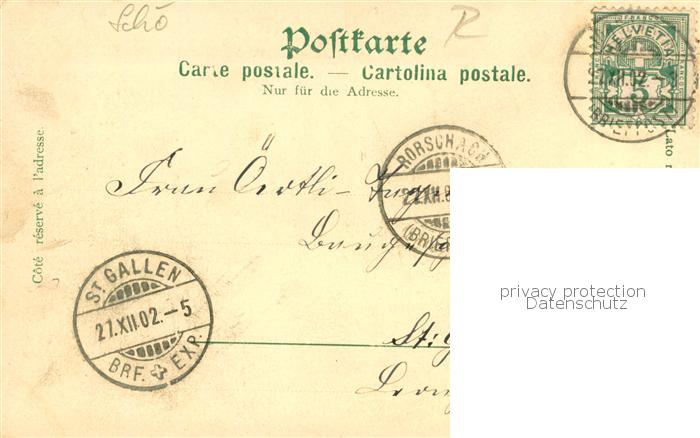 Schö
Postkarte
Carte postale. — Cartolina postale.
Nur für die Adresse.
Côté réservé à l'adresse.
Lato
HELVETIA
FRANCO
5
27.XII.02.
(BRIEFPOST)
RORSCHACH
(BRIEF
Frau Örtli-
Bauge
ST. GALLEN
27.XII.02.-5
BRF. EXP.
St: G
privacy protection
Datenschutz